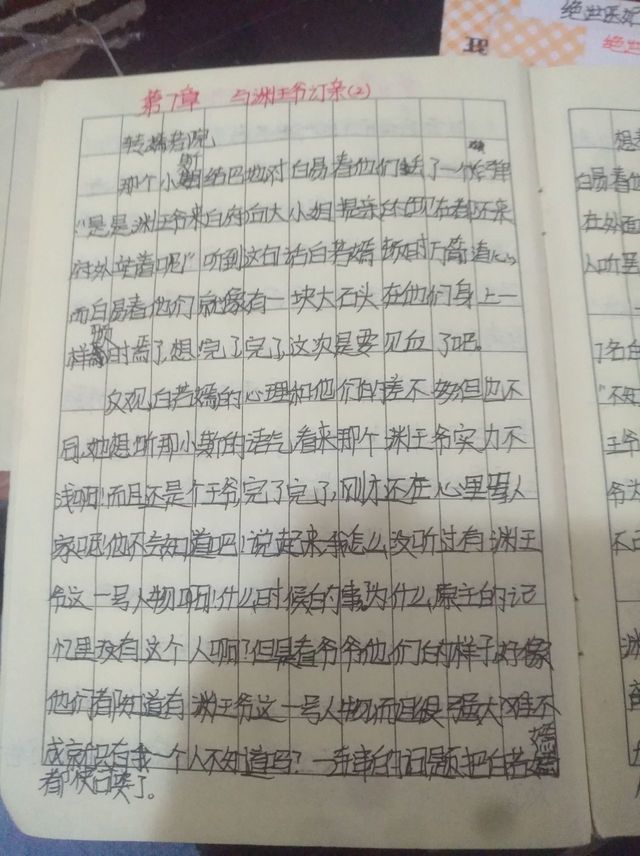 绝世医妃
绝世
第7章 与渊王爷订亲(2)
转嫣若院
那个小厮结巴地对白易着他们
"是是渊王爷来白府向大小姐提亲的现在都还亲
府外站着呢!"听到这句话白若嫣顿时方
而白易着他们就像有一块大石头在他们身上一
样顿时焉了,想:完了,完了,这次是要见血了吧。
反观,白若嫣的心理和他们的差不多但也不
同,她想:听那小斯的语气,看来那个渊王爷实力不
浅啊!而且还是个王爷,完了完了,刚才还在心里骂人
家呢!他不会知道吧!说起来我怎么没听过有渊王
爷这一号人物啊!什么时候的事?为什么原主的记
忆里没有这个人啊?但是看爷爷他们的样子好像
他们都知道有渊王爷这一号人物而且很强大难不
成就只有我一个人不知道吗?一连串的问题把白若嫣
都
想着
白易着
在外面
人听里
了名白
"不知
王爷
爷
不已
渊